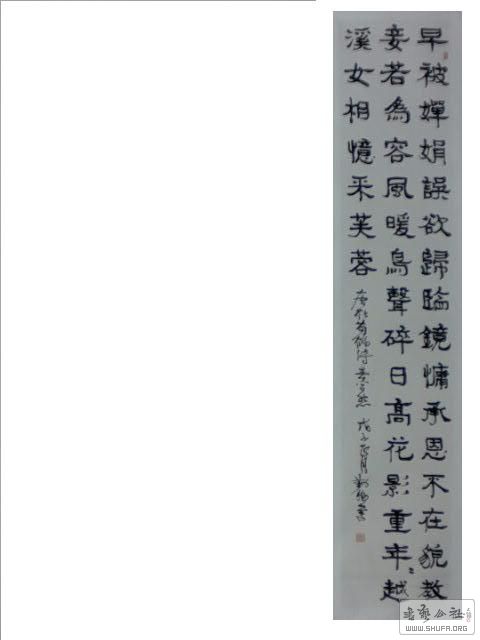 早被嬋娟誤欲歸臨鏡慵承恩不在貌教
妾若為容風暖鳥聲碎日高花影重年〻越
溪女相憶采芙蓉
唐杜荀鶴詩春宮怨 戊子 月 書
WWW.SHUFA.ORG